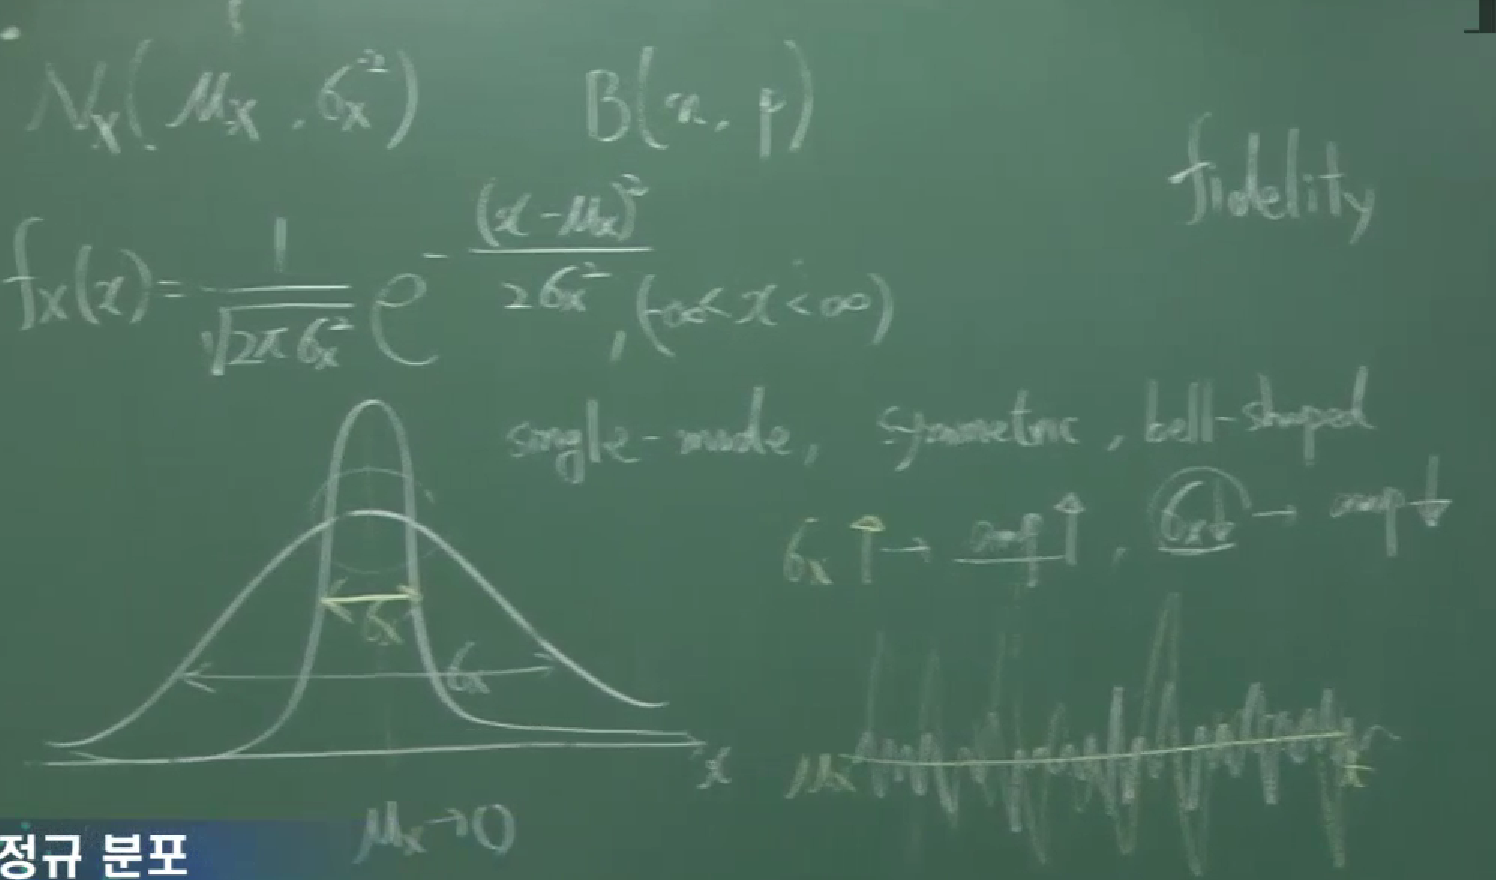 N_X(μ_X, σ_X^2) B(n, p)
fidelity
f_X(x) = 1/√(2πσ_X^2) e^{-(x-μ_X)^2/2σ_X^2}, (-∞<x<∞)
single-mode, symmetric, bell-shaped
σ_X ↑ → amp ↑, σ_X ↓ → amp ↓
σ_X
σ_X
x
μ_X t
μ_X → 0
정규 분포